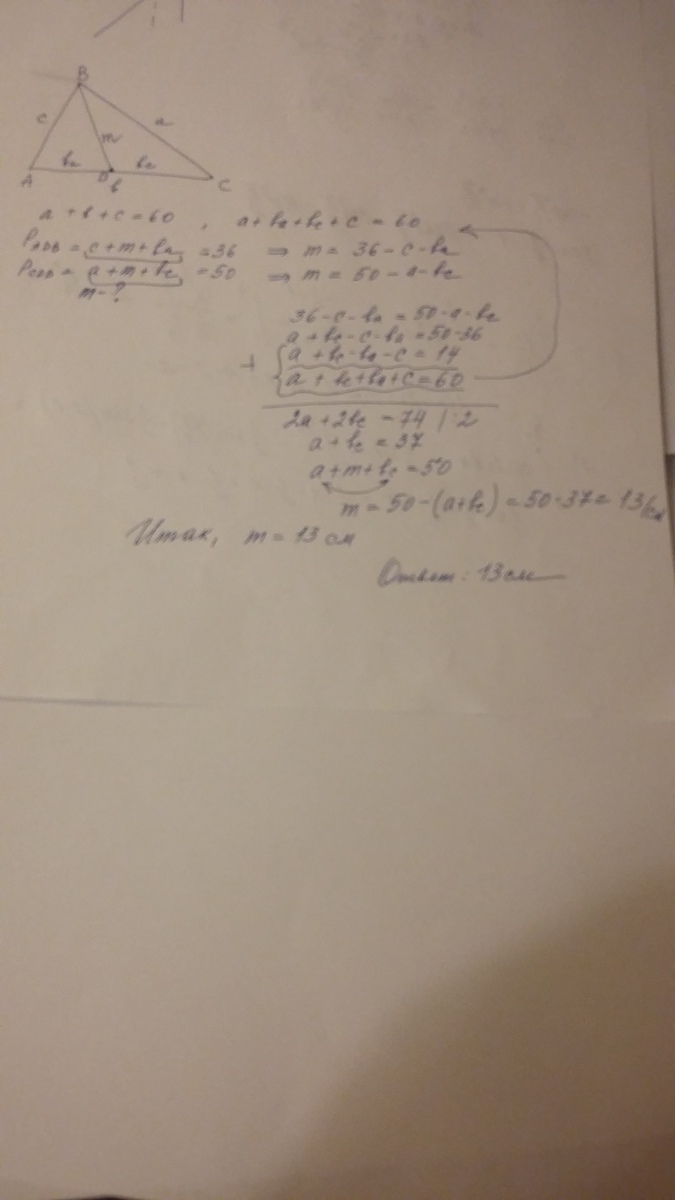 B
c
m
a
bₐ
b꜀
A
D
b
C
a + b + c = 60 , a + bₐ + b꜀ + c = 60
P_ADB = c + m + bₐ = 36 ⇒ m = 36 - c - bₐ
P_CDB = a + m + b꜀ = 50 ⇒ m = 50 - a - b꜀
m - ?
36 - c - bₐ = 50 - a - b꜀
a + b꜀ - c - bₐ = 50 - 36
+ { a + b꜀ - bₐ - c = 14
a + b꜀ + bₐ + c = 60
2a + 2b꜀ = 74 | : 2
a + b꜀ = 37
a + m + b꜀ = 50
m = 50 - (a + b꜀) = 50 - 37 = 13 (см
Итак, m = 13 см
Ответ: 13 см